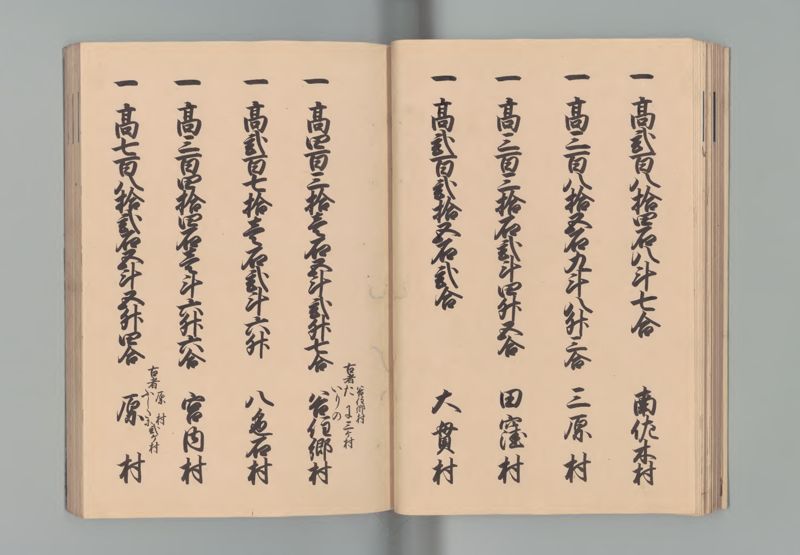 一 高弐百八拾四石八斗七合 南佐木村
一 高三百八拾五石九斗八升三合 三原村
一 高三百三拾石弐斗四升五合 田窪村
一 高弐百弐拾五石弐合 大貫村
一 高四百三拾壱石五斗弐升七合 谷住郷村
古者 谷住郷村
いりの
一 高弐百七拾壱石弐斗六升 八色石村
一 高三百四拾四石壱斗六升六合 宮内村
一 高七百八拾弐石五斗五升四合 原村
古者 原村